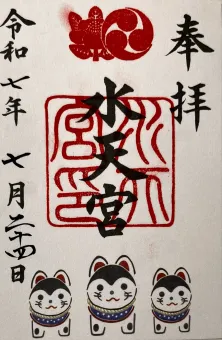 奉拝
水天宮
令和七年 七月二十四日
水天宮印